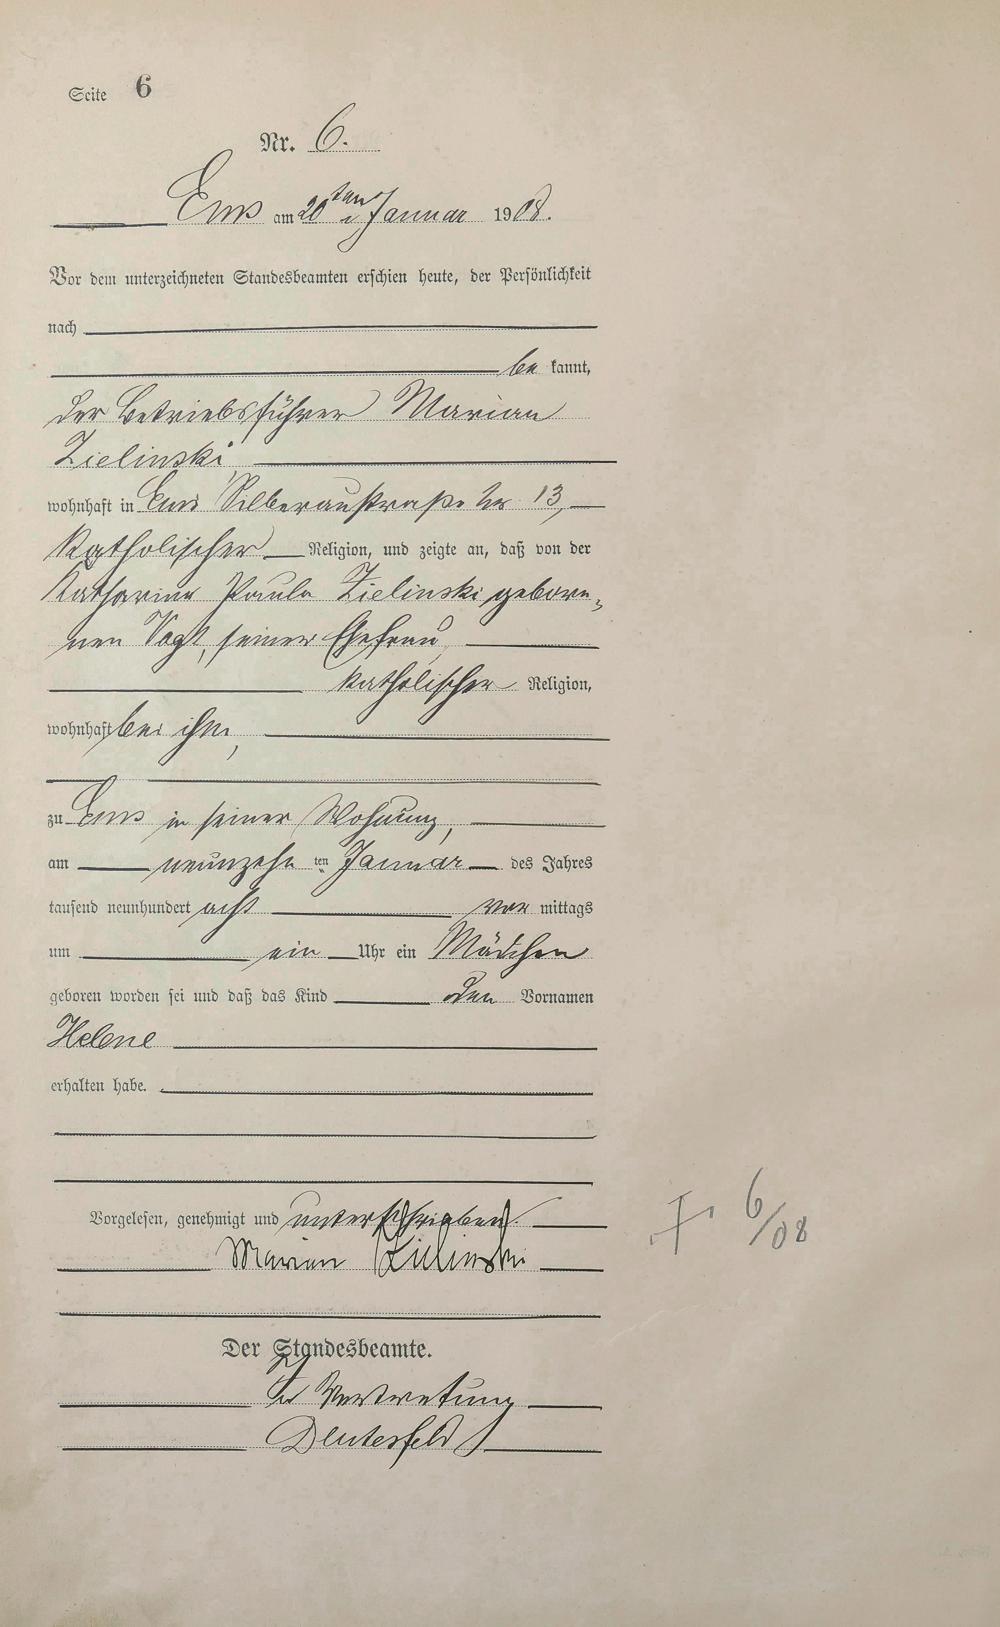 Seite 6
Nr. 6.
Ems am 20ten Januar 1908.
Vor dem unterzeichneten Standesbeamten erschien heute, der Persönlichkeit
nach
be kannt,
der Betriebsführer Marian
Zielinski,
wohnhaft in Ems Silberaustraße Nr 13,
katholischer Religion, und zeigte an, daß von der
Katharina Paula Zielinski gebore-
nen Vogt, seiner Ehefrau,
katholischer Religion,
wohnhaft bei ihm,
zu Ems in seiner Wohnung,
am neunzehn ten Januar des Jahres
tausend neunhundert acht vor mittags
um ein Uhr ein Mädchen
geboren worden sei und daß das Kind den Vornamen
Helene
erhalten habe.
Vorgelesen, genehmigt und unterschrieben.
Marian Zielinski
Der Standesbeamte.
In Vertretung
6/08